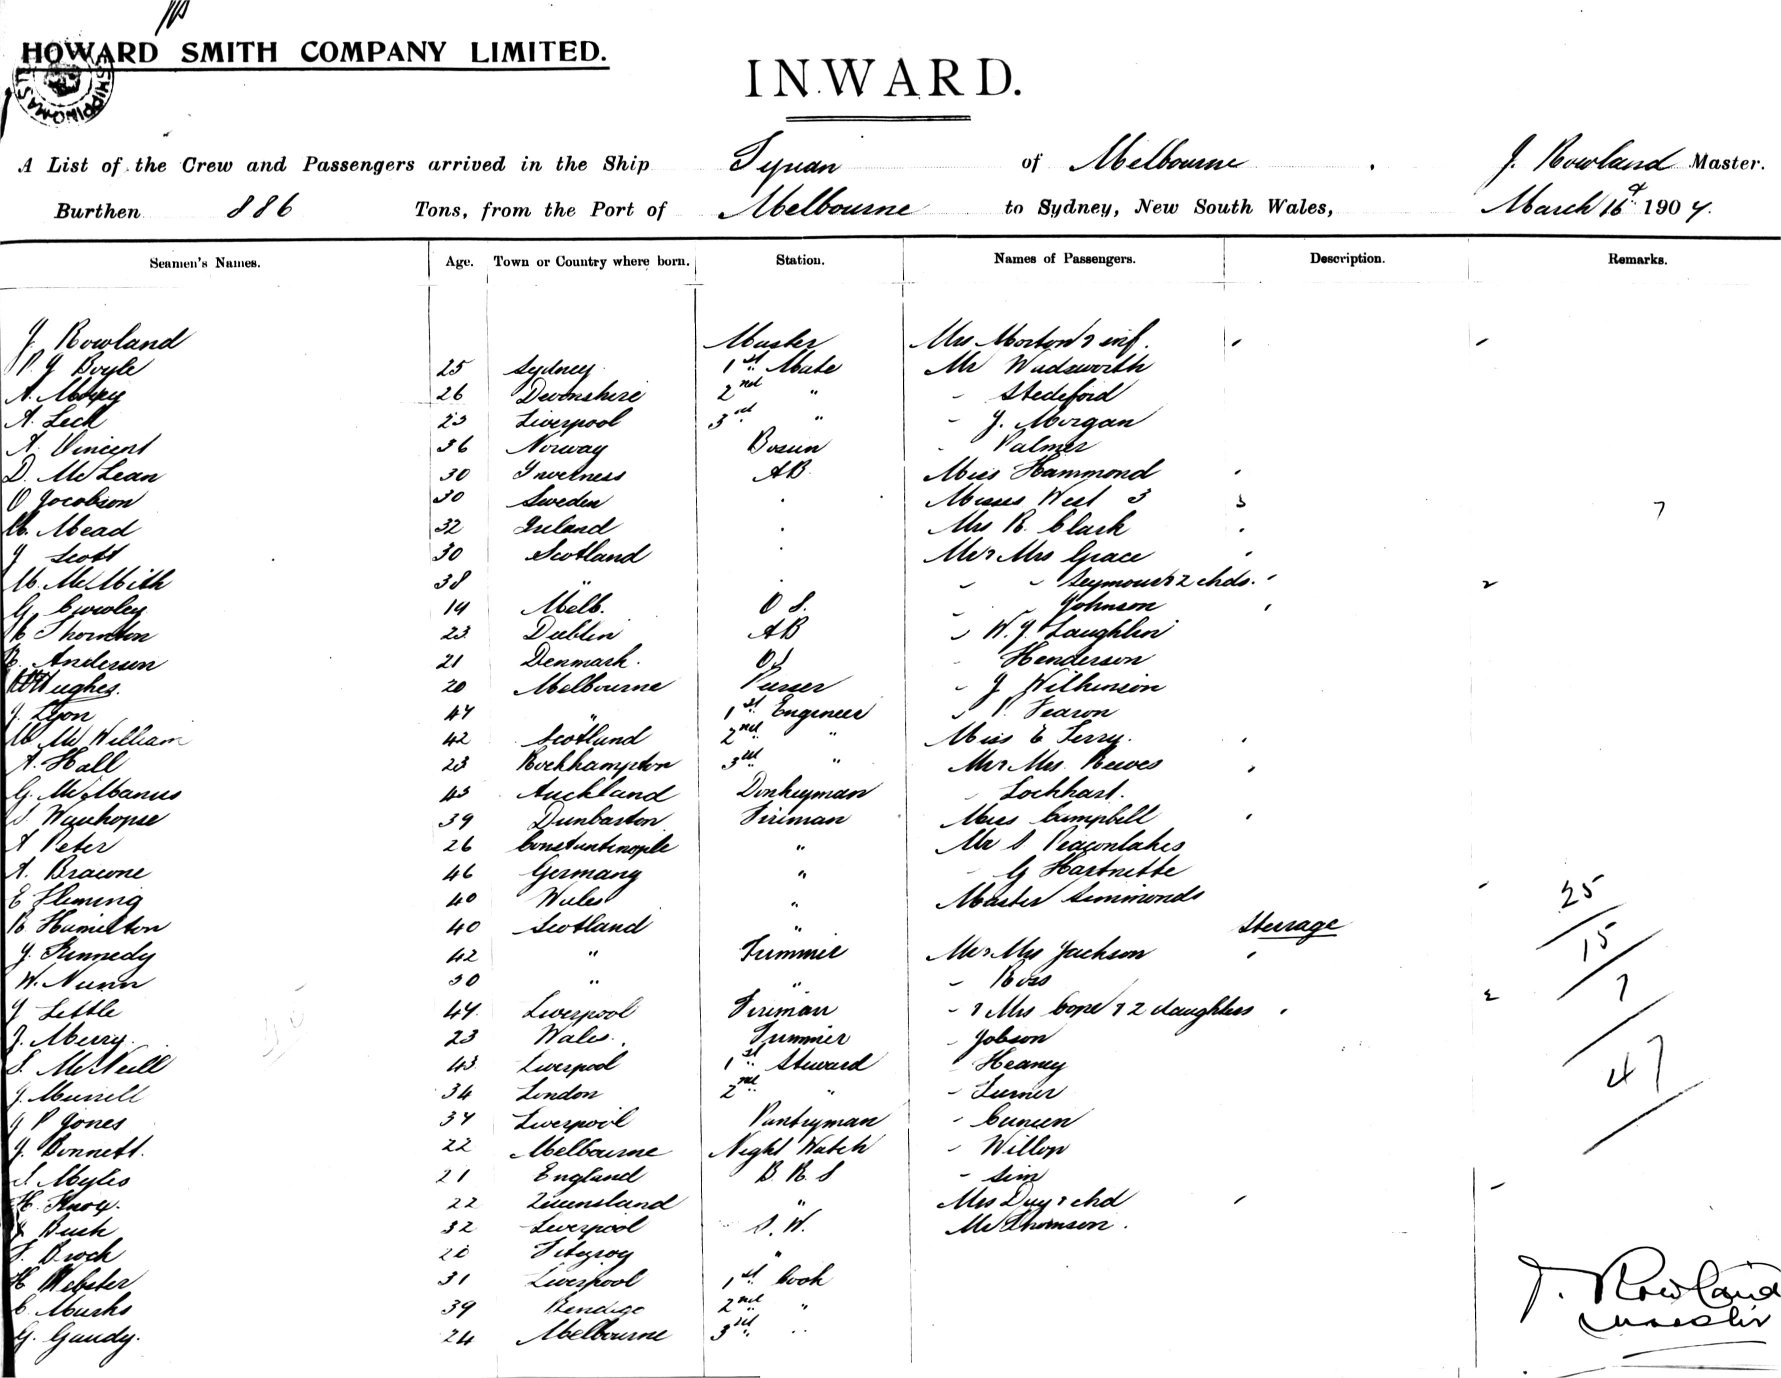 HOWARD SMITH COMPANY LIMITED.
INWARD.
A List of the Crew and Passengers arrived in the Ship Tyrian of Melbourne J. Rowland Master.
Burthen 886 Tons, from the Port of Melbourne to Sydney, New South Wales, March 16th 1904.
Seamen's Names. Age. Town or Country where born. Station. Names of Passengers. Description. Remarks.
J. Rowland Master Mrs Morton & inf.
P J Boyle 25 Sydney 1st Mate Mr Wadsworth
A. 26 Devonshire 2nd " - Stedeford
A. Leck 23 Liverpool 3rd " - J. Morgan
A. Vincent 36 Norway Bosun - Palmer
D. McLean 30 Inverness AB Miss Hammond
O Jocobson 30 Sweden Misses West 3 3 7
Mead 32 Ireland Mrs R. Clark
J Scott 30 Scotland Mr & Mrs Grace
38 " - - Seymour & 2 chds. 2
G. Crowley 19 Melb. O S. - Johnson
Thornton 23 Dublin AB - W. J. Laughlin
Anderson 21 Denmark. OS - Henderson
Hughes. 20 Melbourne Purser - J Wilkinson
J. Lyon 44 " 1st Engineer - P. Fearon
McWilliam 42 Scotland 2nd " Miss E Terry.
A. Hall 23 Rockhampton 3rd " Mr & Mrs Reeves
G. McManus 43 Auckland Donkeyman - Lockhart.
Wauhopse 39 Dunbarton Fireman Miss Campbell
A Peter 26 Constantinople " Mr S
A. Browne 46 Germany " - G Hartnitte
E Fleming 40 Wales " Master Simmonds 25
R Hamilton 40 Scotland " Steerage
J. Kennedy 42 " Trimmer Mr & Mrs Jackson 15
W. Nunn 30 " " - Ross 7
J Little 44. Liverpool Fireman - & Mrs Cope & 2 daughters 2
J. Merry. 23 Wales. Trimmer - Jobson
S. McNeill 43 Liverpool 1st Steward - Heaney 47
J. Murrell 34 London 2nd " - Turner
J P Jones 34 Liverpool Pantryman - Cuneen
J. Bonnett. 22 Melbourne Night Watch -
Myles 21 England B. R. S - Sim
H. Knox. 22 Queensland " Mrs Day & chd
Bush 32 Liverpool S. W. Mr Thomson.
Brock Fitzroy "
H Webster 31 Liverpool 1st Cook
C. Marks 39 Bendigo 2nd "
G. Gandy. 24 Melbourne 3rd "
J. Rowland
Master